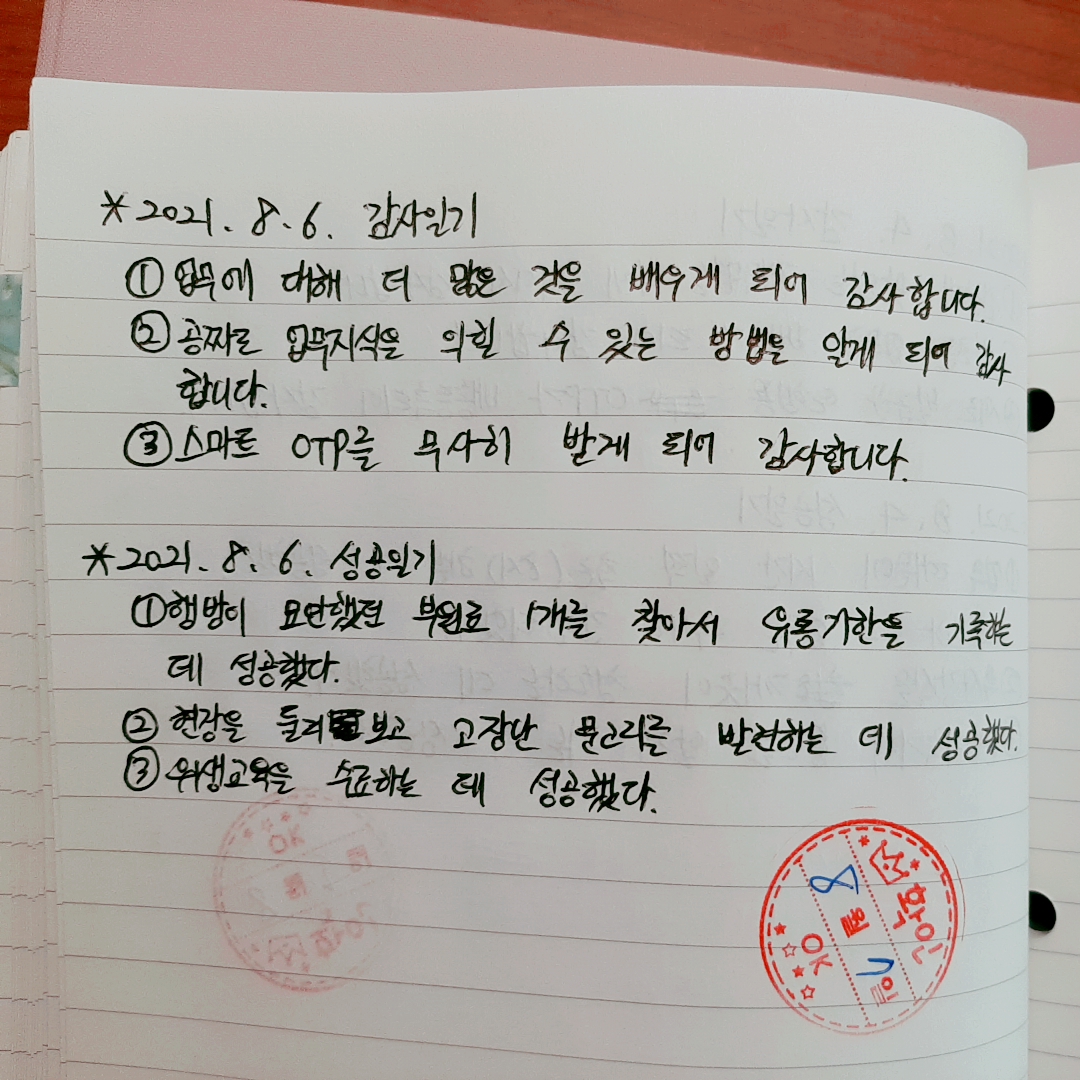 *2021. 8. 6. 감사일기
① 업무에 대해 더 많은 것을 배우게 되어 감사합니다.
② 공짜로 업무지식을 익힐 수 있는 방법을 알게 되어 감사
합니다.
③ 스마트 OTP를 무사히 받게 되어 감사합니다.
*2021. 8. 6. 성공일기
① 행방이 묘연했던 부원료 1개를 찾아서 유통기한을 기록하는
데 성공했다.
② 현장을 둘러보고 고장난 문고리를 발견하는 데 성공했다.
③ 위생교육을 수료하는 데 성공했다.
확인
8월 일
OK